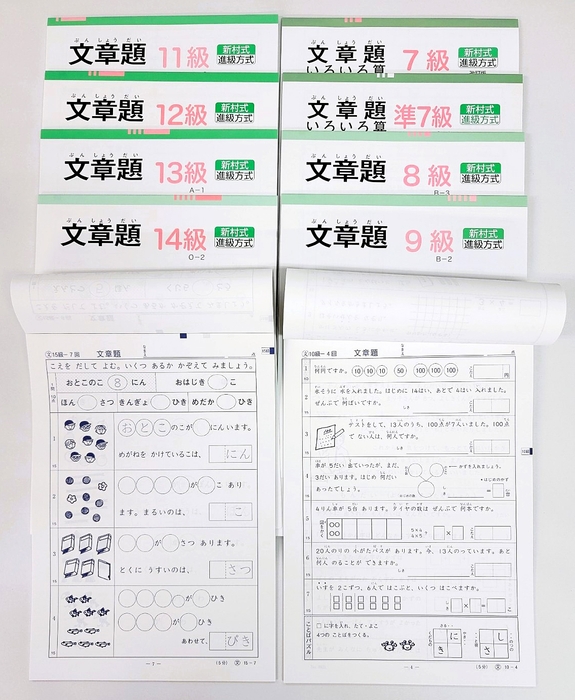 ぶん しょう だい
文章題 11級 新村式 進級方式
ぶん しょう だい
文章題 12級 新村式 進級方式
ぶん しょう だい
文章題 13級 新村式 進級方式
A-1
ぶん しょう だい
文章題 14級 新村式 進級方式
O-2
ぶん しょう だい
文章題 7級 新村式 進級方式
いろいろ算
ぶん しょう だい
文章題 準7級 新村式 進級方式
いろいろ算
ぶん しょう だい
文章題 8級 新村式 進級方式
B-3
ぶん しょう だい
文章題 9級 新村式 進級方式
B-2
文15級-7回 文章題 点
こえを だして よむ。いくつ あるか かぞえて みましょう。
おとこのこ 8 にん おはじき こ
ほん さつ きんぎょ ひき めだか ひき
1
おとこ のこが にんいます。
めがねを かけているは、 にん
2
が こ あり
ます。まるいのは、 こ
3
が さつ あります。
とくに うすいのは、 さつ
4
が ひき
が ひき
あわせて、 ぴき
-7-
(5分) 文 15-7
文10級-4回 文章題 点
1
何円ですか。 10 10 10 50 100 100 100 円
2
水そうに 水を入れました。はじめに 14はい、あとで 4はい 入れました。
ぜんぶで 何ばいですか。
しき
3
テストをして、13人のうち、100点が7人いました。100点
で ない人は、何人ですか。
しき
4
車が 5だい 出ていったが、まだ、
かずを入れましょう。
3だい あります。はじめ 何だい
あったでしょう。
しき
5
4りん車が 5台 あります。タイヤの数は ぜんぶで 何本ですか。
5×4
4×5
6
20人のりの 小がたバスが あります。今、13人のっています。あと
何人 のることが できますか。
しき
7
いすを 2こずつ、6人で はこぶと、いくつ はこべますか。
しき
ことばパズル
□に字を入れ、たて・よこ
4つの ことばをつくる。
に
き
し
さ
-4-
(5分) 文 10-4